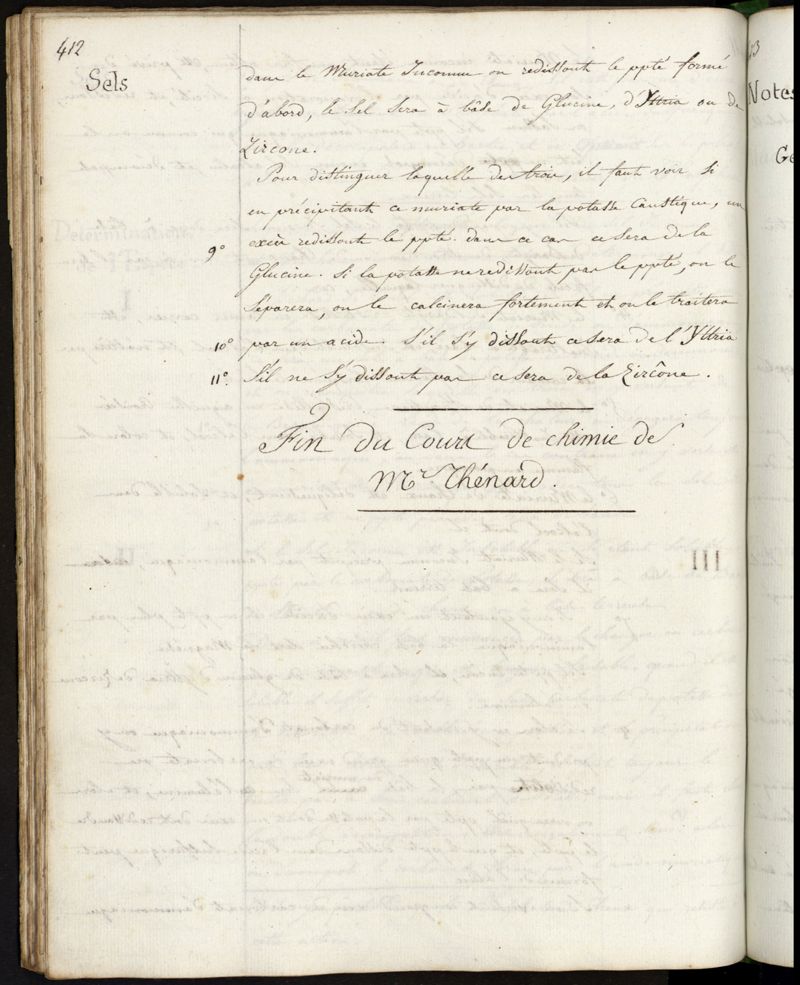 412
Sels
dans le Muriate Inconnu on redissout le ppté formé
d'abord, le Sel Sera à bâse de Glucine, d'Yttria ou de
Zircone.
Pour distinguer laquelle des trois, il faut voir Si
en précipitant ce muriate par la potasse Caustique, un
9° excès redissout le ppté. dans ce cas ce Sera de la
Glucine. Si la potasse ne redissout pas le ppté, on le
Séparera, on le calcinera fortement et on le traitera
10° par un acide. S'il S'y dissout ce sera de l'Yttria
11° S'il ne S'y dissout pas ce sera de la Zircône.
Fin du Cours de chimie de
Mr Thénard.
III
13
Notes
Ge